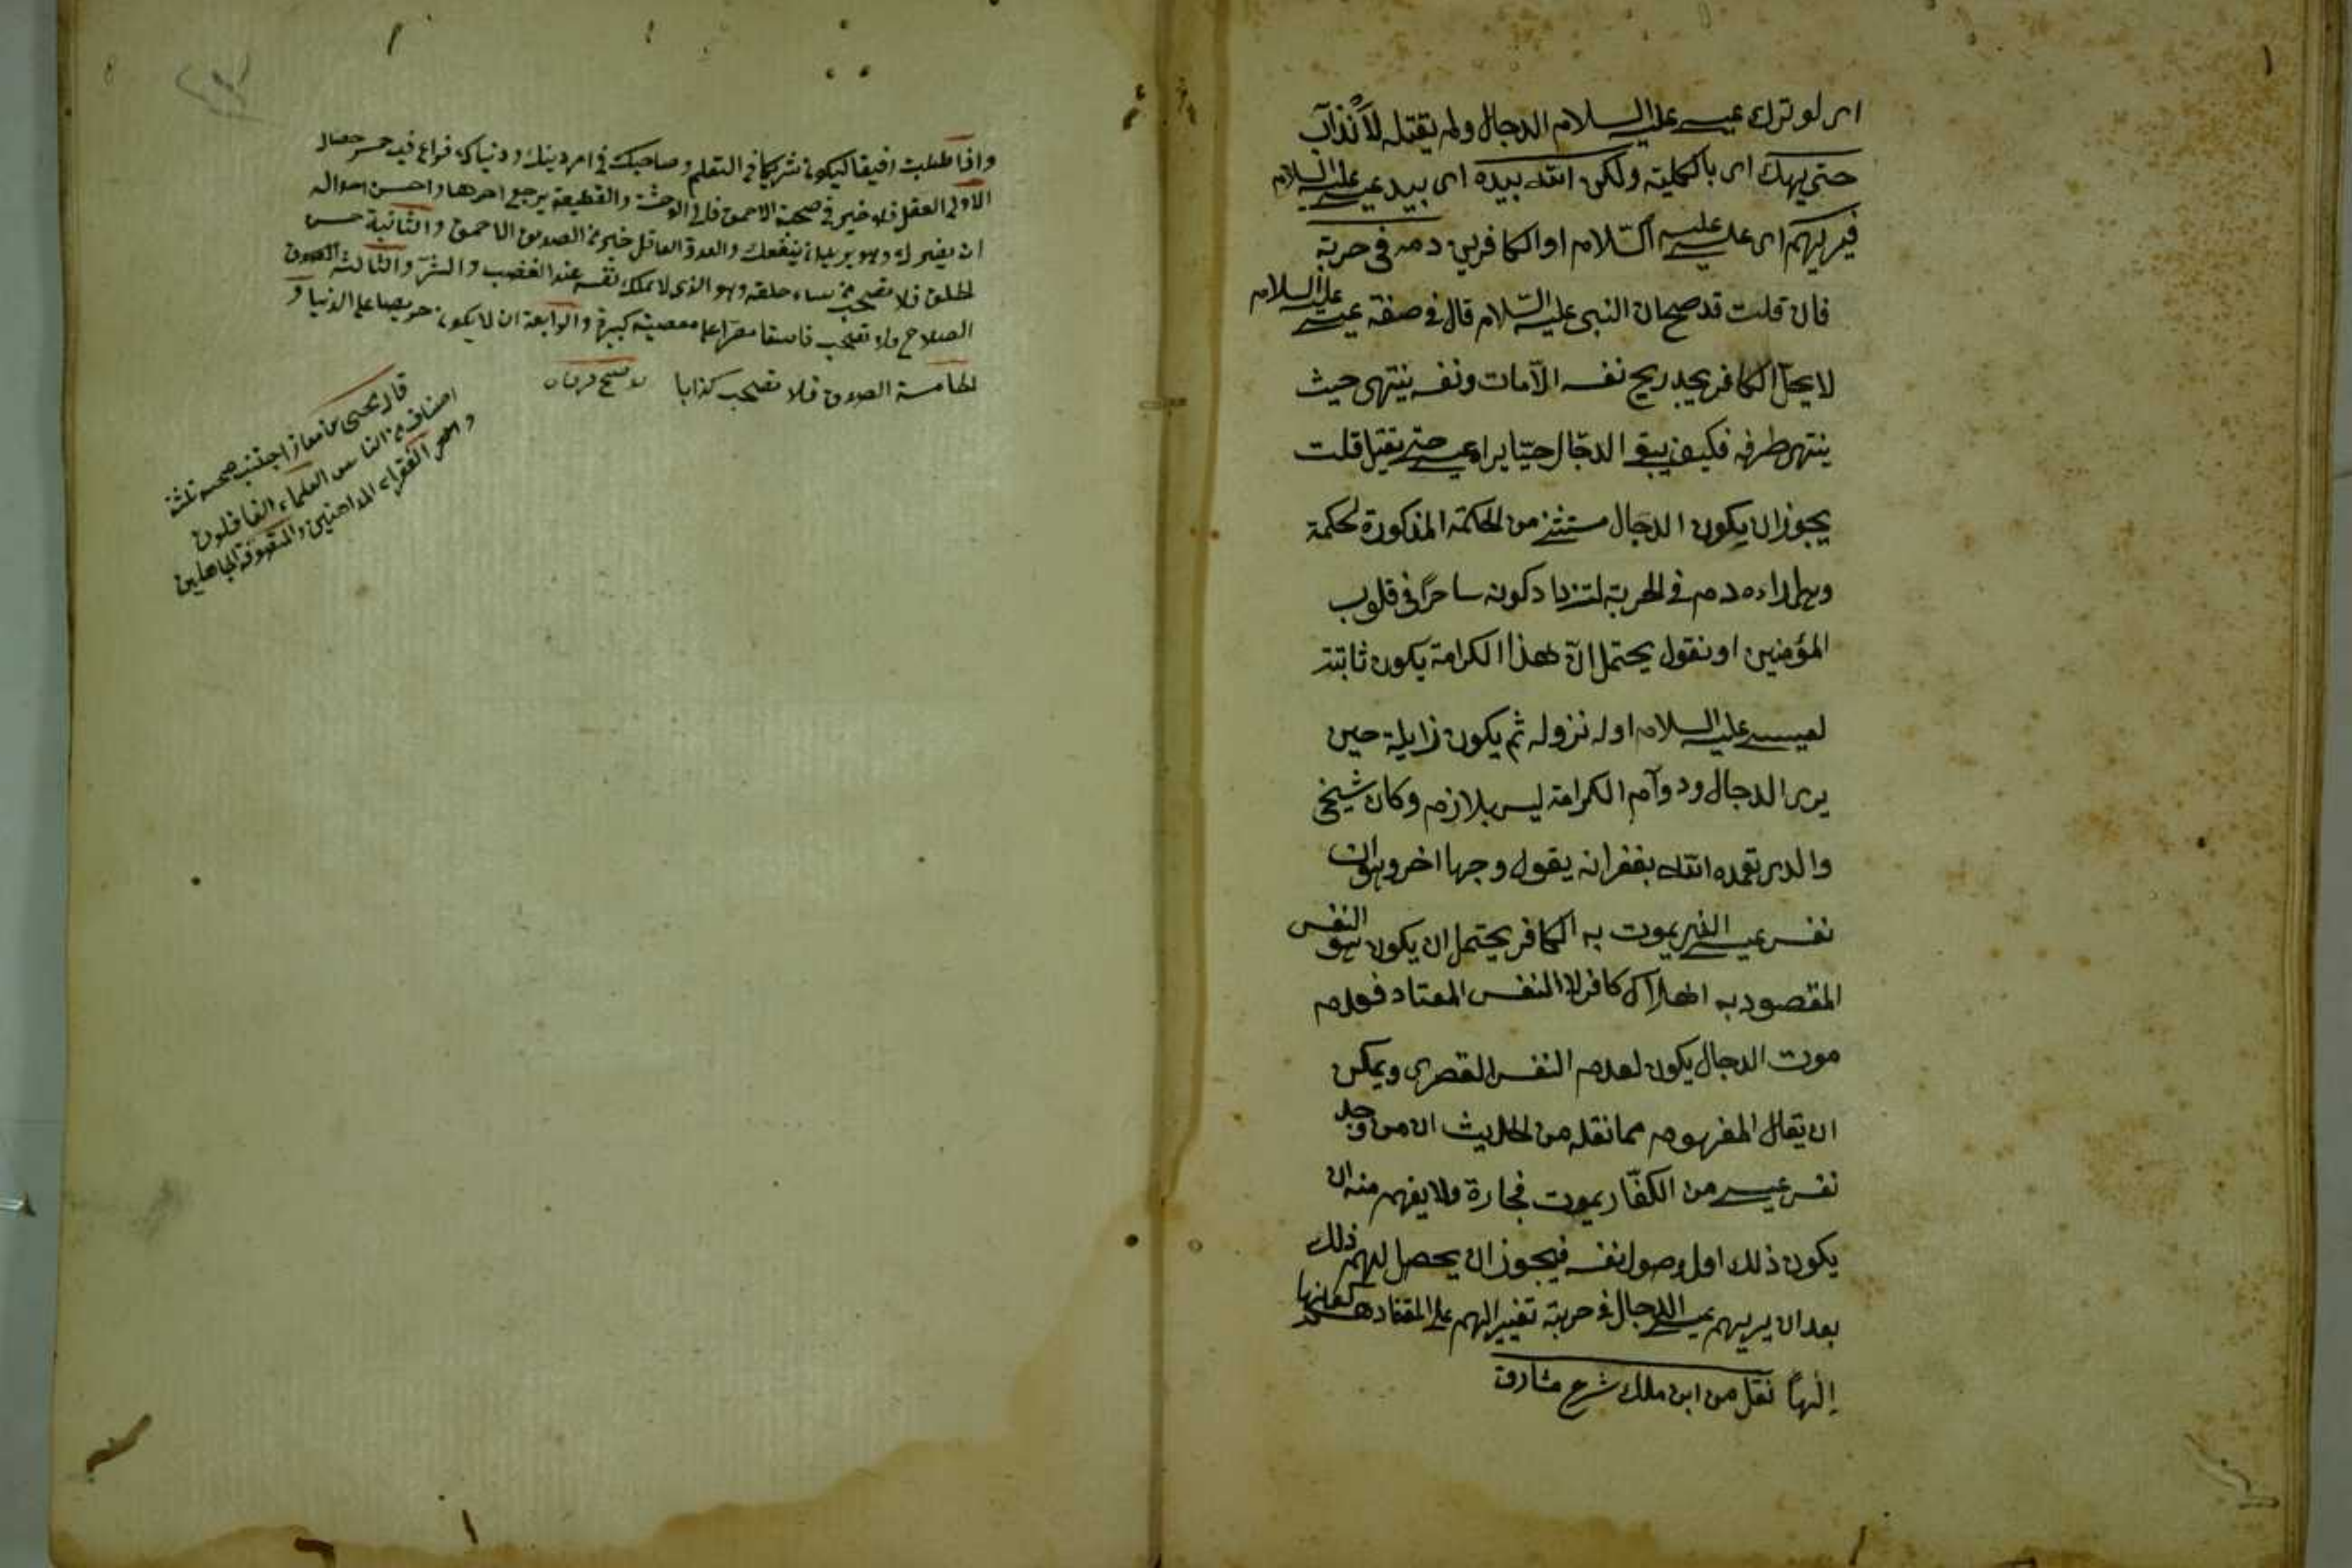 اى لو ترك عيسى عليه السلام الدجال ولم يقتله لانذاب
حتى يهلك اى بالكلية ولكن الله بيده اى بيد عيسى عليه السلام
فيريهم اى عيسى عليه السّلام او الكافرين دمه فى حربته
فان قلت قد صح ان النبى عليه السّلام قال فى صفة عيسى عليه السلام
لا يحلّ لكافر يجد ريح نفسه الّا مات ونفسه ينتهى حيث
ينتهى طرفه فكيف يبقى الدجّال حيّا يراه عيسى حتى يقتل قلت
يجوز ان يكون الدجال مستثنى من الحكمة المذكورة لحكمة
وهى اراءه دمه فى الحربة لتزداد كونه ساحرًا فى قلوب
المؤمنين او نقول يحتمل انّ هذا الكرامة يكون ثابتة
لعيسى عليه السلام اول نزوله ثم يكون زايلة حين
يرى الدجال ودوآم الكرامة ليس بلازم وكان شيخى
والدى تغمده الله بغفرانه يقول وجها اخر وهو ان
نفس عيسى الذى يموت به الكافر يحتمل ان يكون هو النفس
المقصود به اهلاك كافر لا النفس المعتاد فعدم
موت الدجال يكون لعدم النفس القصرى ويمكن
ان يقال المفهوم مما نقله من الحديث ان من وجد
نفس عيسى من الكفّار يموت فجارة ولا يفهم منه ان
يكون ذلك اول وصول نفسه فيجوز ان يحصل لهم ذلك
بعد ان يريهم عيسى الدجال فى حربة تغيير الهم على اعتقادهم كونها
الهاً نقل من ابن ملك شرح مشارق
واذا طلبت رفيقا ليكون شريكا فى التعلم وصاحبك فى امر دينك ودنياك فراع فيه خمس خصال
الاولى العقل فلا خير فى صحبة الاحمق فالى الوحشة والقطيعة يرجع اخرها واحسن احواله
ان يضرك وهو يريد ان ينفعك والعدو العاقل خير من الصديق الاحمق والثانية حسن
الخلق فلا تصحب من ساء خلقه وهو الذى لا يملك نفسه عند الغضب والشرّ والثالثة
الصلاح ولا تصحب فاسقا مصرّا على معصية كبيرة والرابعة ان لا يكون حريصا على الدنيا و
الخامسة الصدق فلا تصحب كذابا
قال يحيى بن معاذ اجتنب صحبة ثلثة
اصناف من الناس العلماء الغافلون
والفقراء المداهنين والمتصوفة الجاهلين